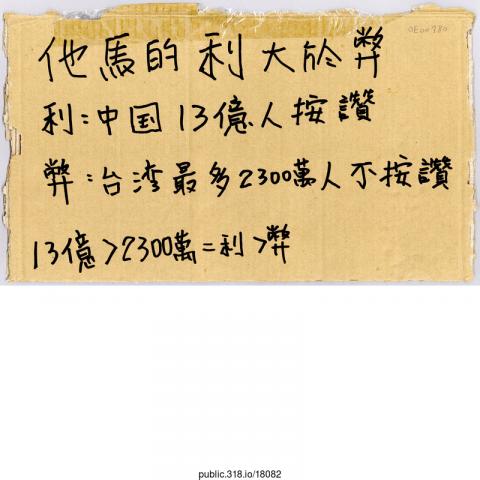 OE00780
他馬的利大於弊
利:中国13億人按讚
弊:台湾最多2300萬人不按讚
13億>2300萬=利>弊
public.318.io/18082